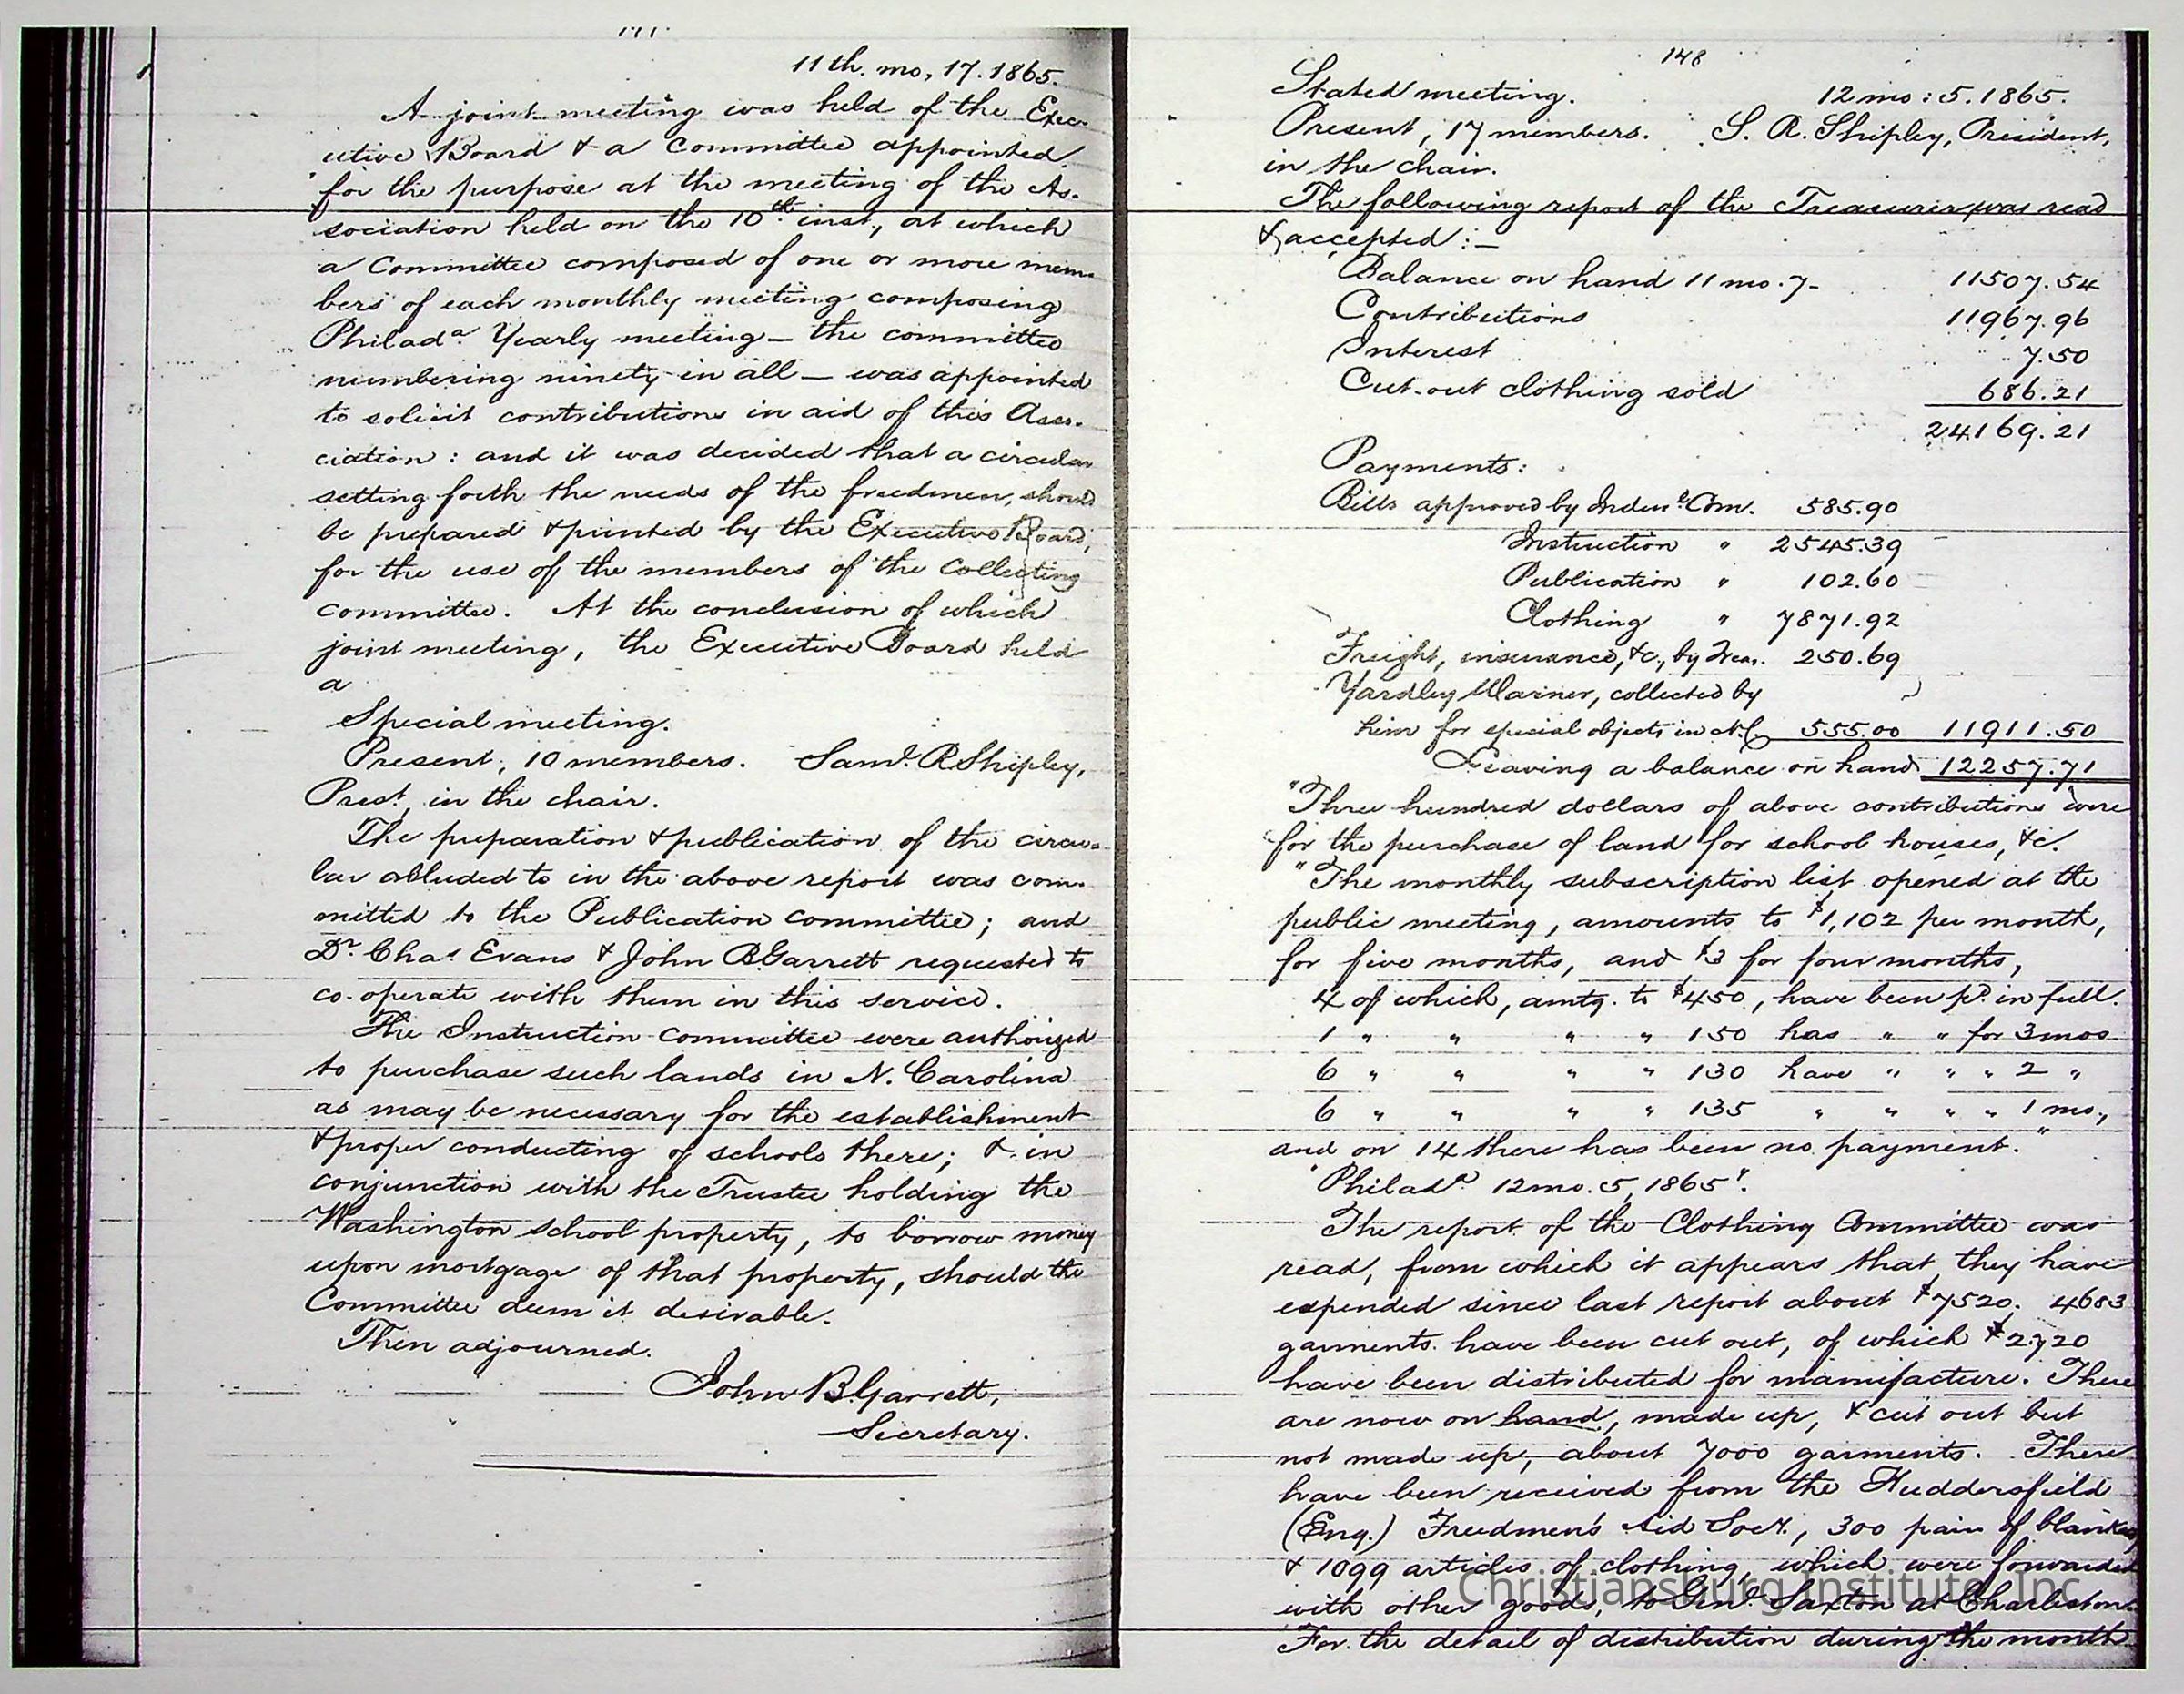 147
11th. mo, 17. 1865.
A joint meeting was held of the Exec-
utive Board & a Committee appointed
for the purpose at the meeting of the As-
sociation held on the 10th inst, at which
a Committee composed of one or more mem-
bers of each monthly meeting composing
Philada. Yearly meeting — the committee
numbering ninety in all — was appointed
to solicit contributions in aid of this Asso-
ciation: and it was decided that a circular
setting forth the needs of the freedmen, should
be prepared & printed by the Executive Board,
for the use of the members of the Collecting
committee. At the conclusion of which
joint meeting, the Executive Board held
a
Special meeting.
Present, 10 members. Saml. R Shipley,
Prest, in the chair.
The preparation & publication of the circu-
lar alluded to in the above report was com-
mitted to the Publication committee; and
Dr. Chas Evans & John B Garrett requested to
co-operate with them in this service.
The Instruction committee were authorized
to purchase such lands in N. Carolina
as may be necessary for the establishment
& proper conducting of schools there; & in
conjunction with the Trustee holding the
Washington school property, to borrow money
upon mortgage of that property, should the
Committee deem it desirable.
Then adjourned.
John B. Garrett,
Secretary.
148
Stated meeting. 12 mo: 5. 1865.
Present, 17 members. S. R. Shipley, President,
in the chair.
The following report of the Treasurer was read
& accepted:—
Balance on hand 11 mo. 7- 11507.54
Contributions 11967.96
Interest 7.50
Cut-out clothing sold 686.21
24169.21
Payments:
Bills approved by Indent Com. 585.90
Instruction " 2545.39
Publication " 102.60
Clothing " 7871.92
Freight, insurance, &c, by Treas. 250.69
Yardley Warner, collected by
him for special objects in N.C. 555.00 11911.50
Leaving a balance on hand 12257.71
"Three hundred dollars of above contributions were
for the purchase of land for school houses, &c.
"The monthly subscription list opened at the
public meeting, amounts to $1,102 per month,
for five months, and $3 for four months,
4 of which, amtg. to $450, have been pd. in full.
1 " " " " 150 has " " for 3 mos
6 " " " " 130 have " " " 2 "
6 " " " " 135 " " " " 1 mo.,
and on 14 there has been no payment."
"Philada. 12 mo. 5, 1865".
The report of the Clothing Committee was
read, from which it appears that they have
expended since last report about $7520. 4683
garments have been cut out, of which $2720
have been distributed for manufacture. There
are now on hand, made up, & cut out but
not made up, about 7000 garments. There
have been received from the Huddersfield
(Eng.) Freedmen's Aid Socy., 300 pair of blankets
& 1099 articles of clothing, which were forwarded
with other goods, to Genl. Saxton at Charleston.
For the detail of distribution during the month
Christiansburg Institute, Inc